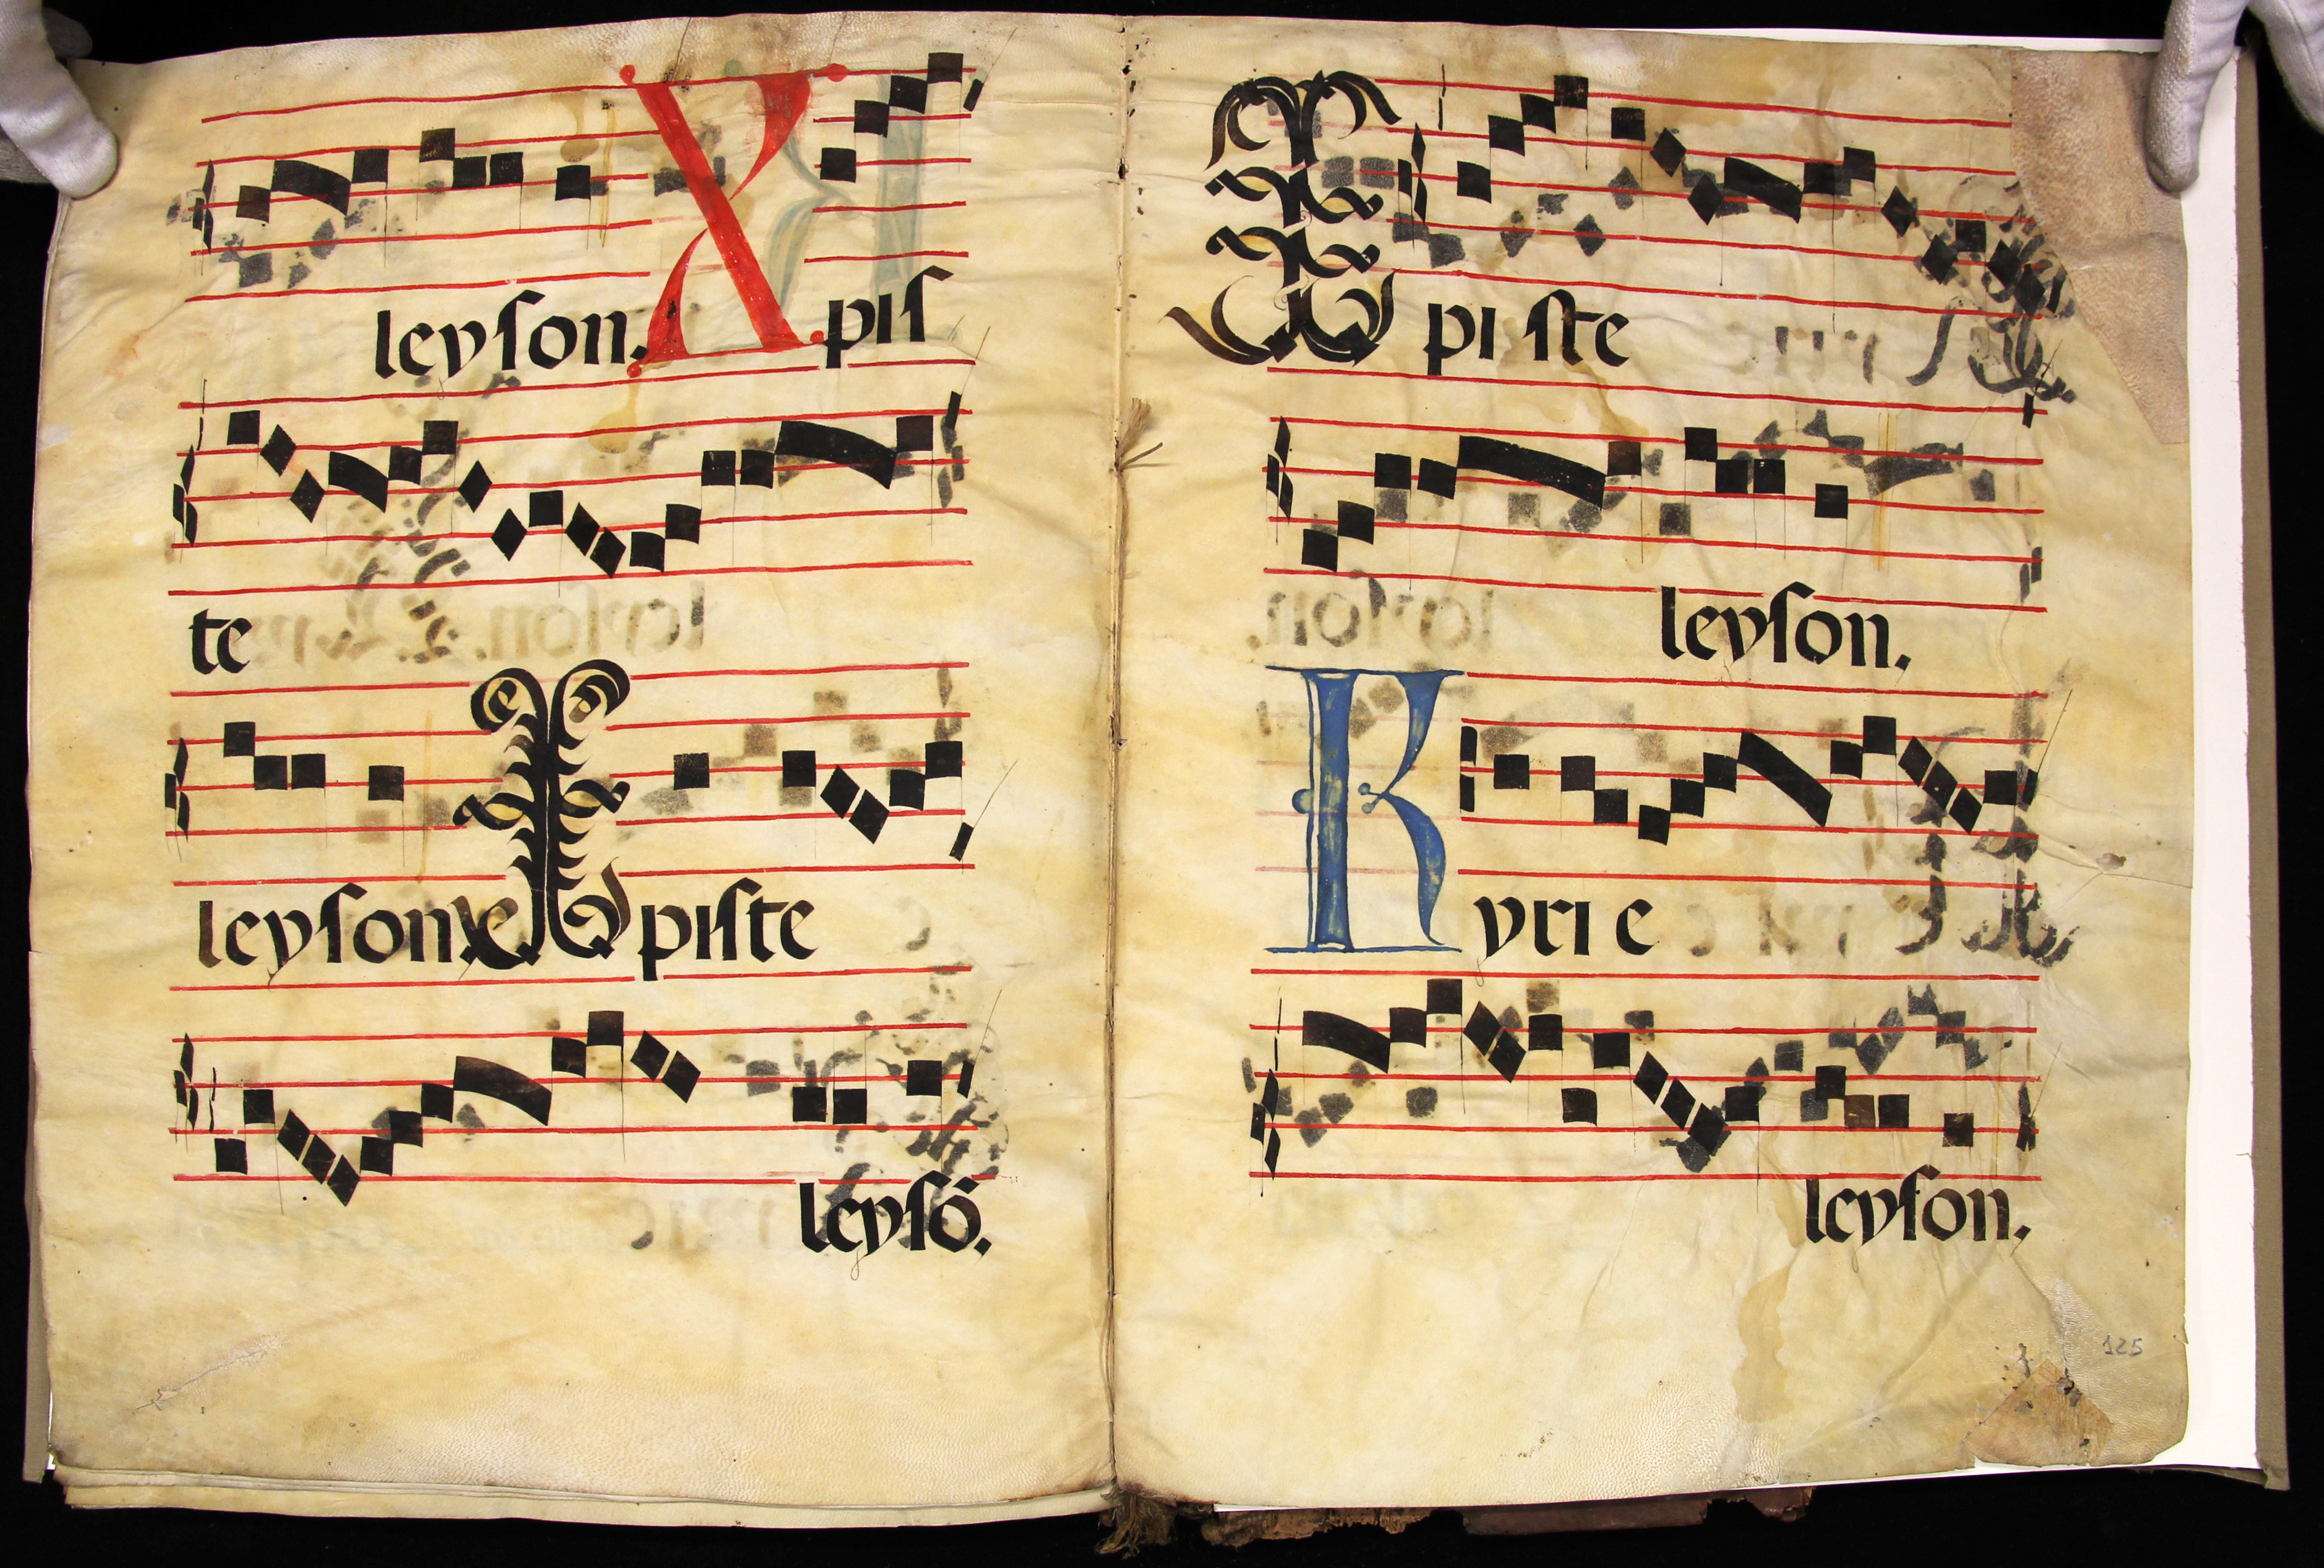 leyſon. Xpiſ
te
leyſon X piſte
leyſō.
Xpi ſte
leyſon.
Kyri e
leyſon.
125